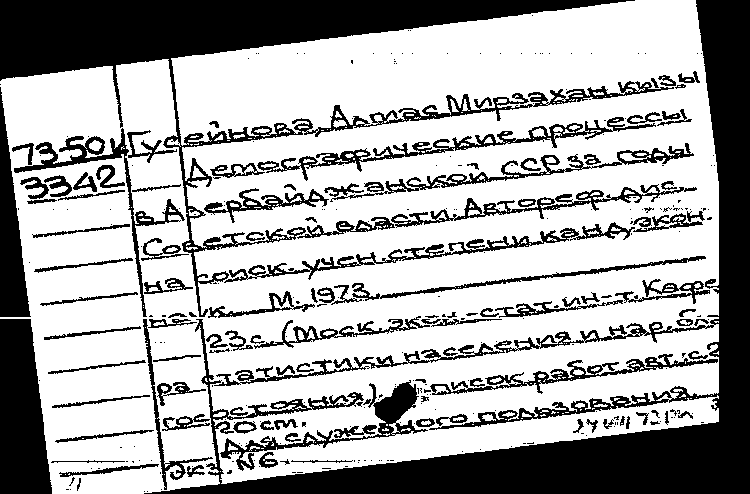 73-50к Гусейнова, Алмас Мирзахан кызы
3342 Демографические процессы
в Азербайджанской ССР за годы
Советской власти. Автореф. дис.
на соиск. учен. степени канд. экон.
наук. М., 1973.
23 с. (Моск. экон.-стат. ин-т. Кафед
ра статистики населения и нар. бла
госостояния). Список работ авт.: с. 2
20 см.
Для служебного пользования.
Экз. №6